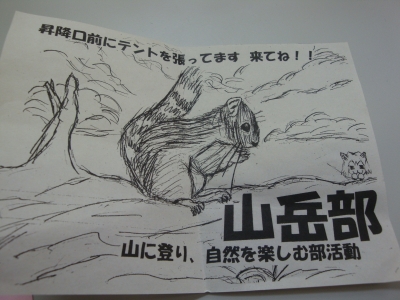 昇降口前にテントを張ってます 来てね！！
山岳部
山に登り、自然を楽しむ部活動